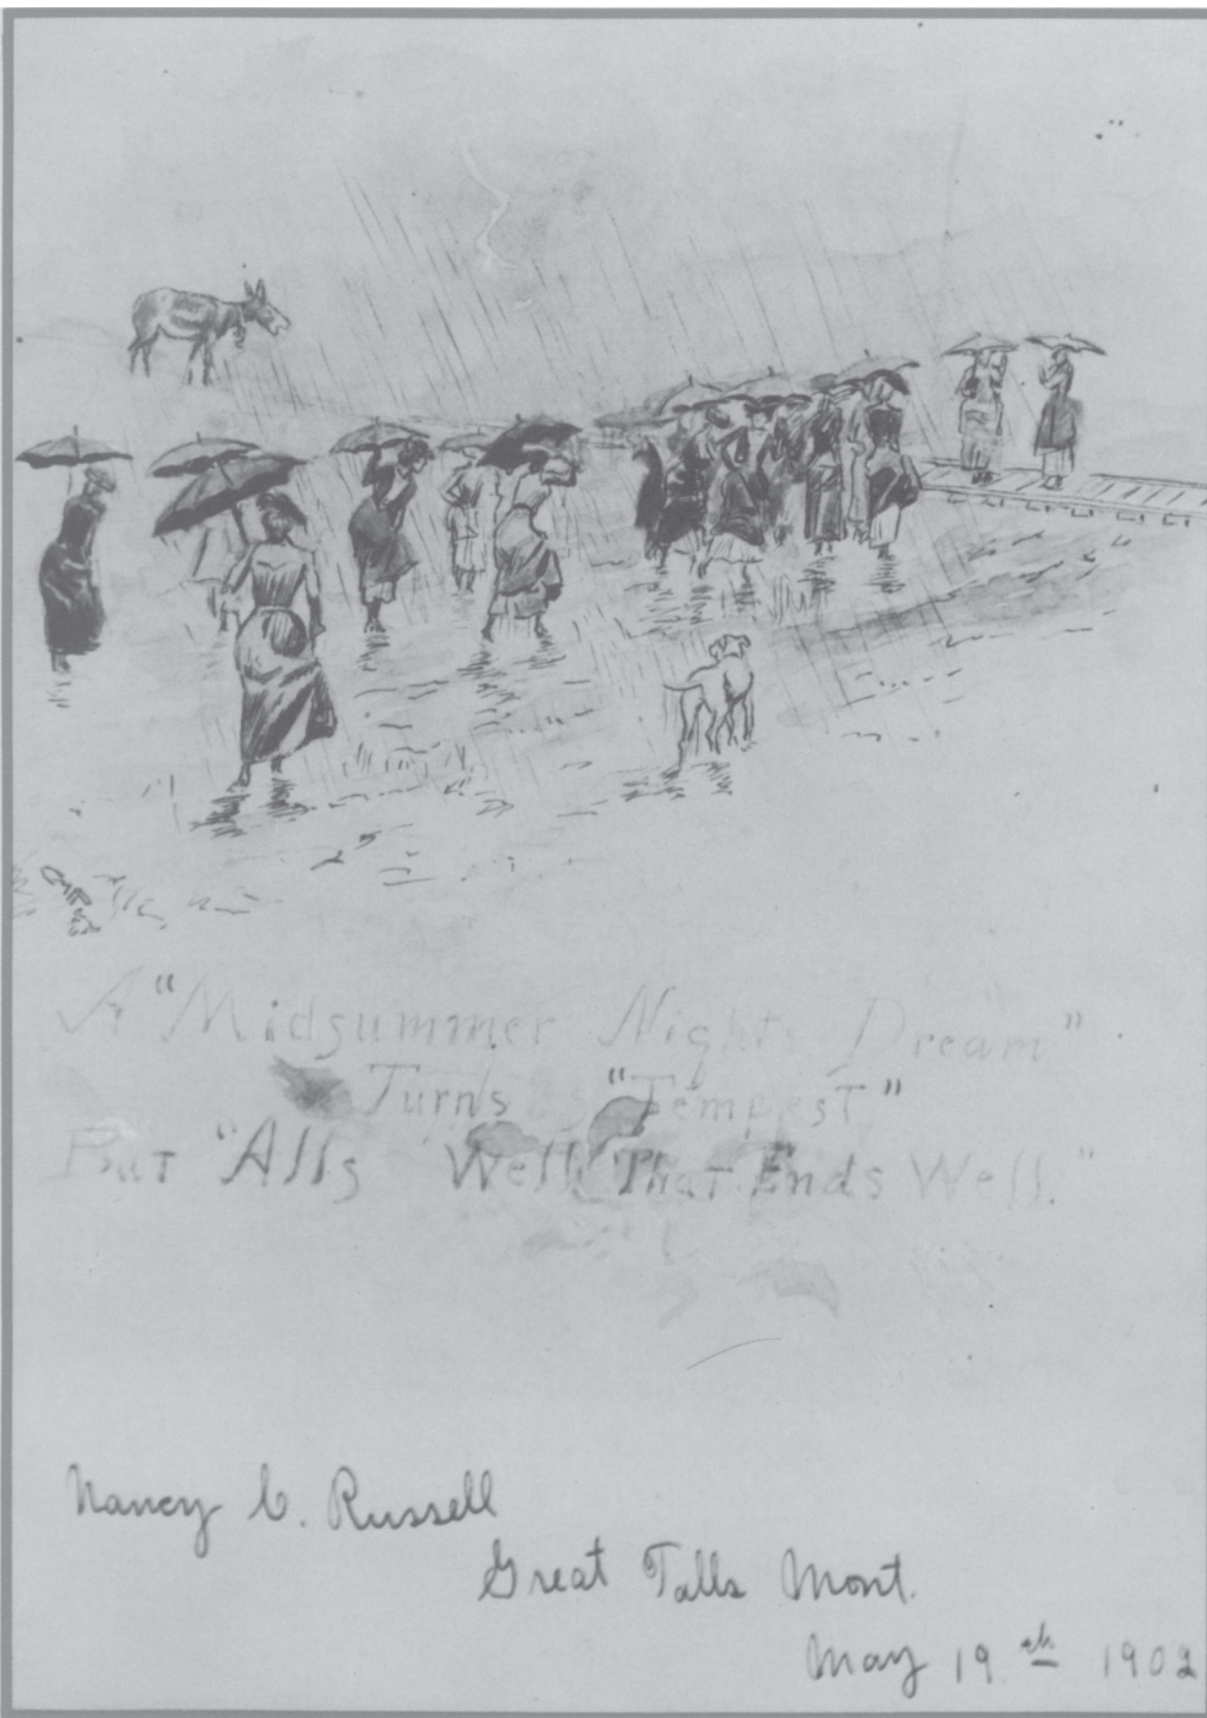 A "Midsummer Nights Dream"
Turns "Tempest"
But "Alls Well That Ends Well."
Nancy C. Russell
Great Falls Mont.
May 19th 1902